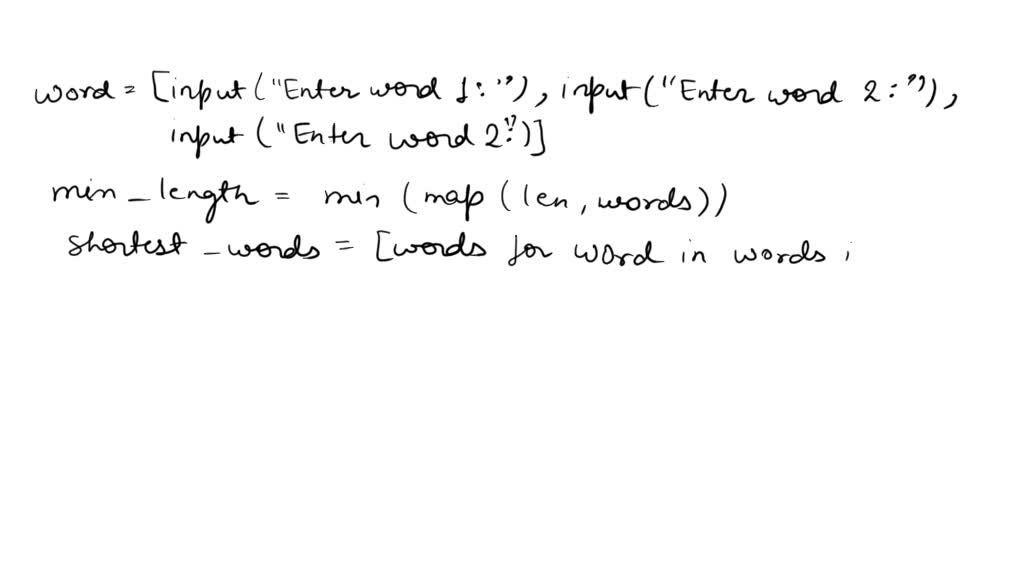 word = [input ("Enter word 1: "), input ("Enter word 2 : "),
input ("Enter word 2:")]
min_length = min (map (len, words))
shortest_words = [words for word in words i